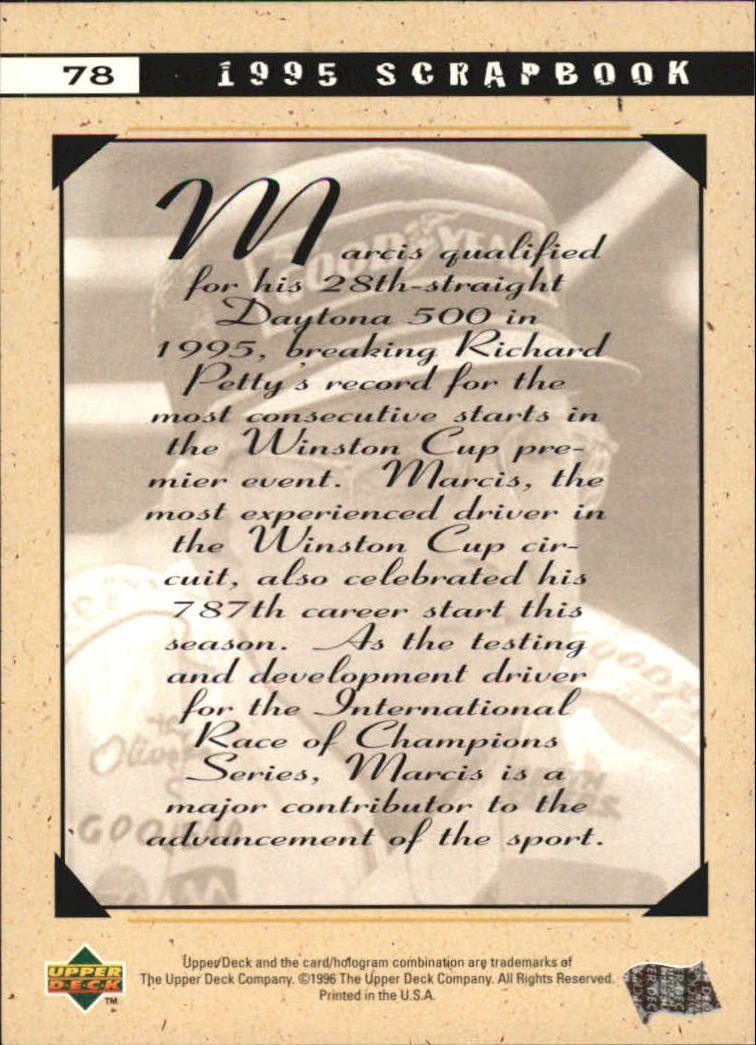 78
1995 SCRAPBOOK
Marcis qualified
for his 28th-straight
Daytona 500 in
1995, breaking Richard
Petty's record for the
most consecutive starts in
the Winston Cup pre-
mier event. Marcis, the
most experienced driver in
the Winston Cup cir-
cuit, also celebrated his
787th career start this
season. As the testing
and development driver
for the International
Race of Champions
Series, Marcis is a
major contributor to the
advancement of the sport.
GOODYEAR
GOODYEAR
UPPER
DECK
TM
Upper Deck and the card/hologram combination are trademarks of
The Upper Deck Company. ©1996 The Upper Deck Company. All Rights Reserved.
Printed in the U.S.A.